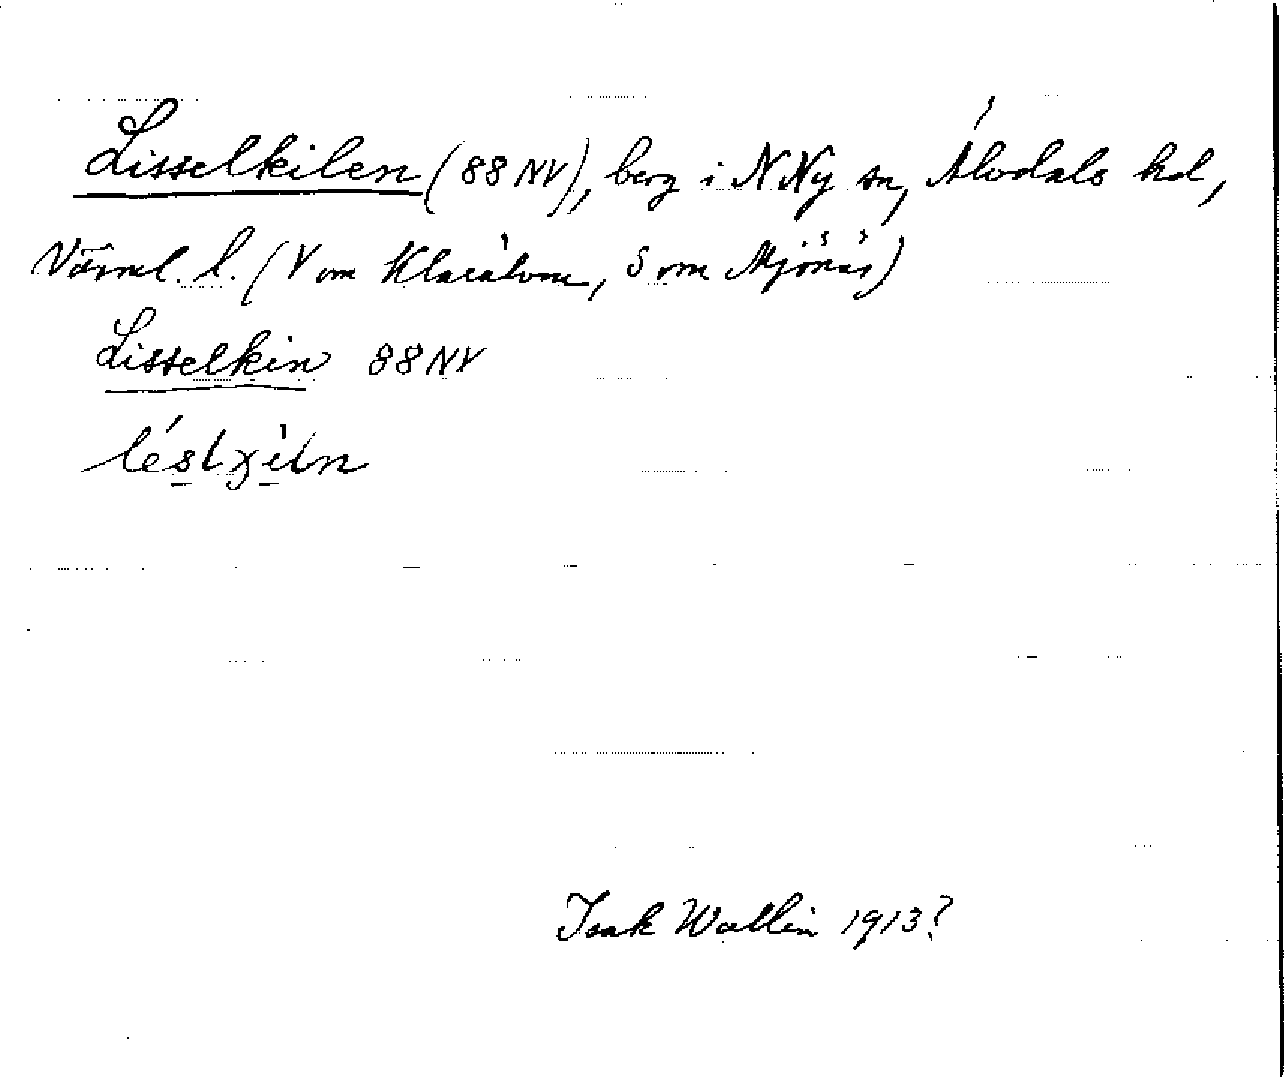 Lisselkilen (88 NV), berg i N Ny sn, Älvdals hd,
Värml. l. (V om Klarälven, S om Mjönäs)
Lisselkin 88 NV
Isak Wallin 1913?